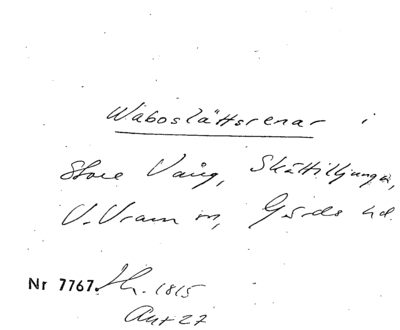 Wåboslättsrenar i
Store Vång, Skättilljunga,
V. Vram m, Gärds hd.
Nr 7767. 1815